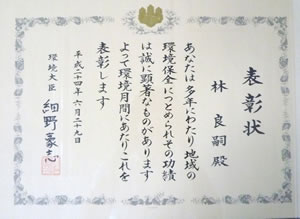 表彰状
林良嗣殿
あなたは多年にわたり地域の
環境保全につとめられその功績
は誠に顕著なものがあります
よって環境月間にあたりこれを
表彰します
平成二十四年六月二十九日
環境大臣 細野豪志